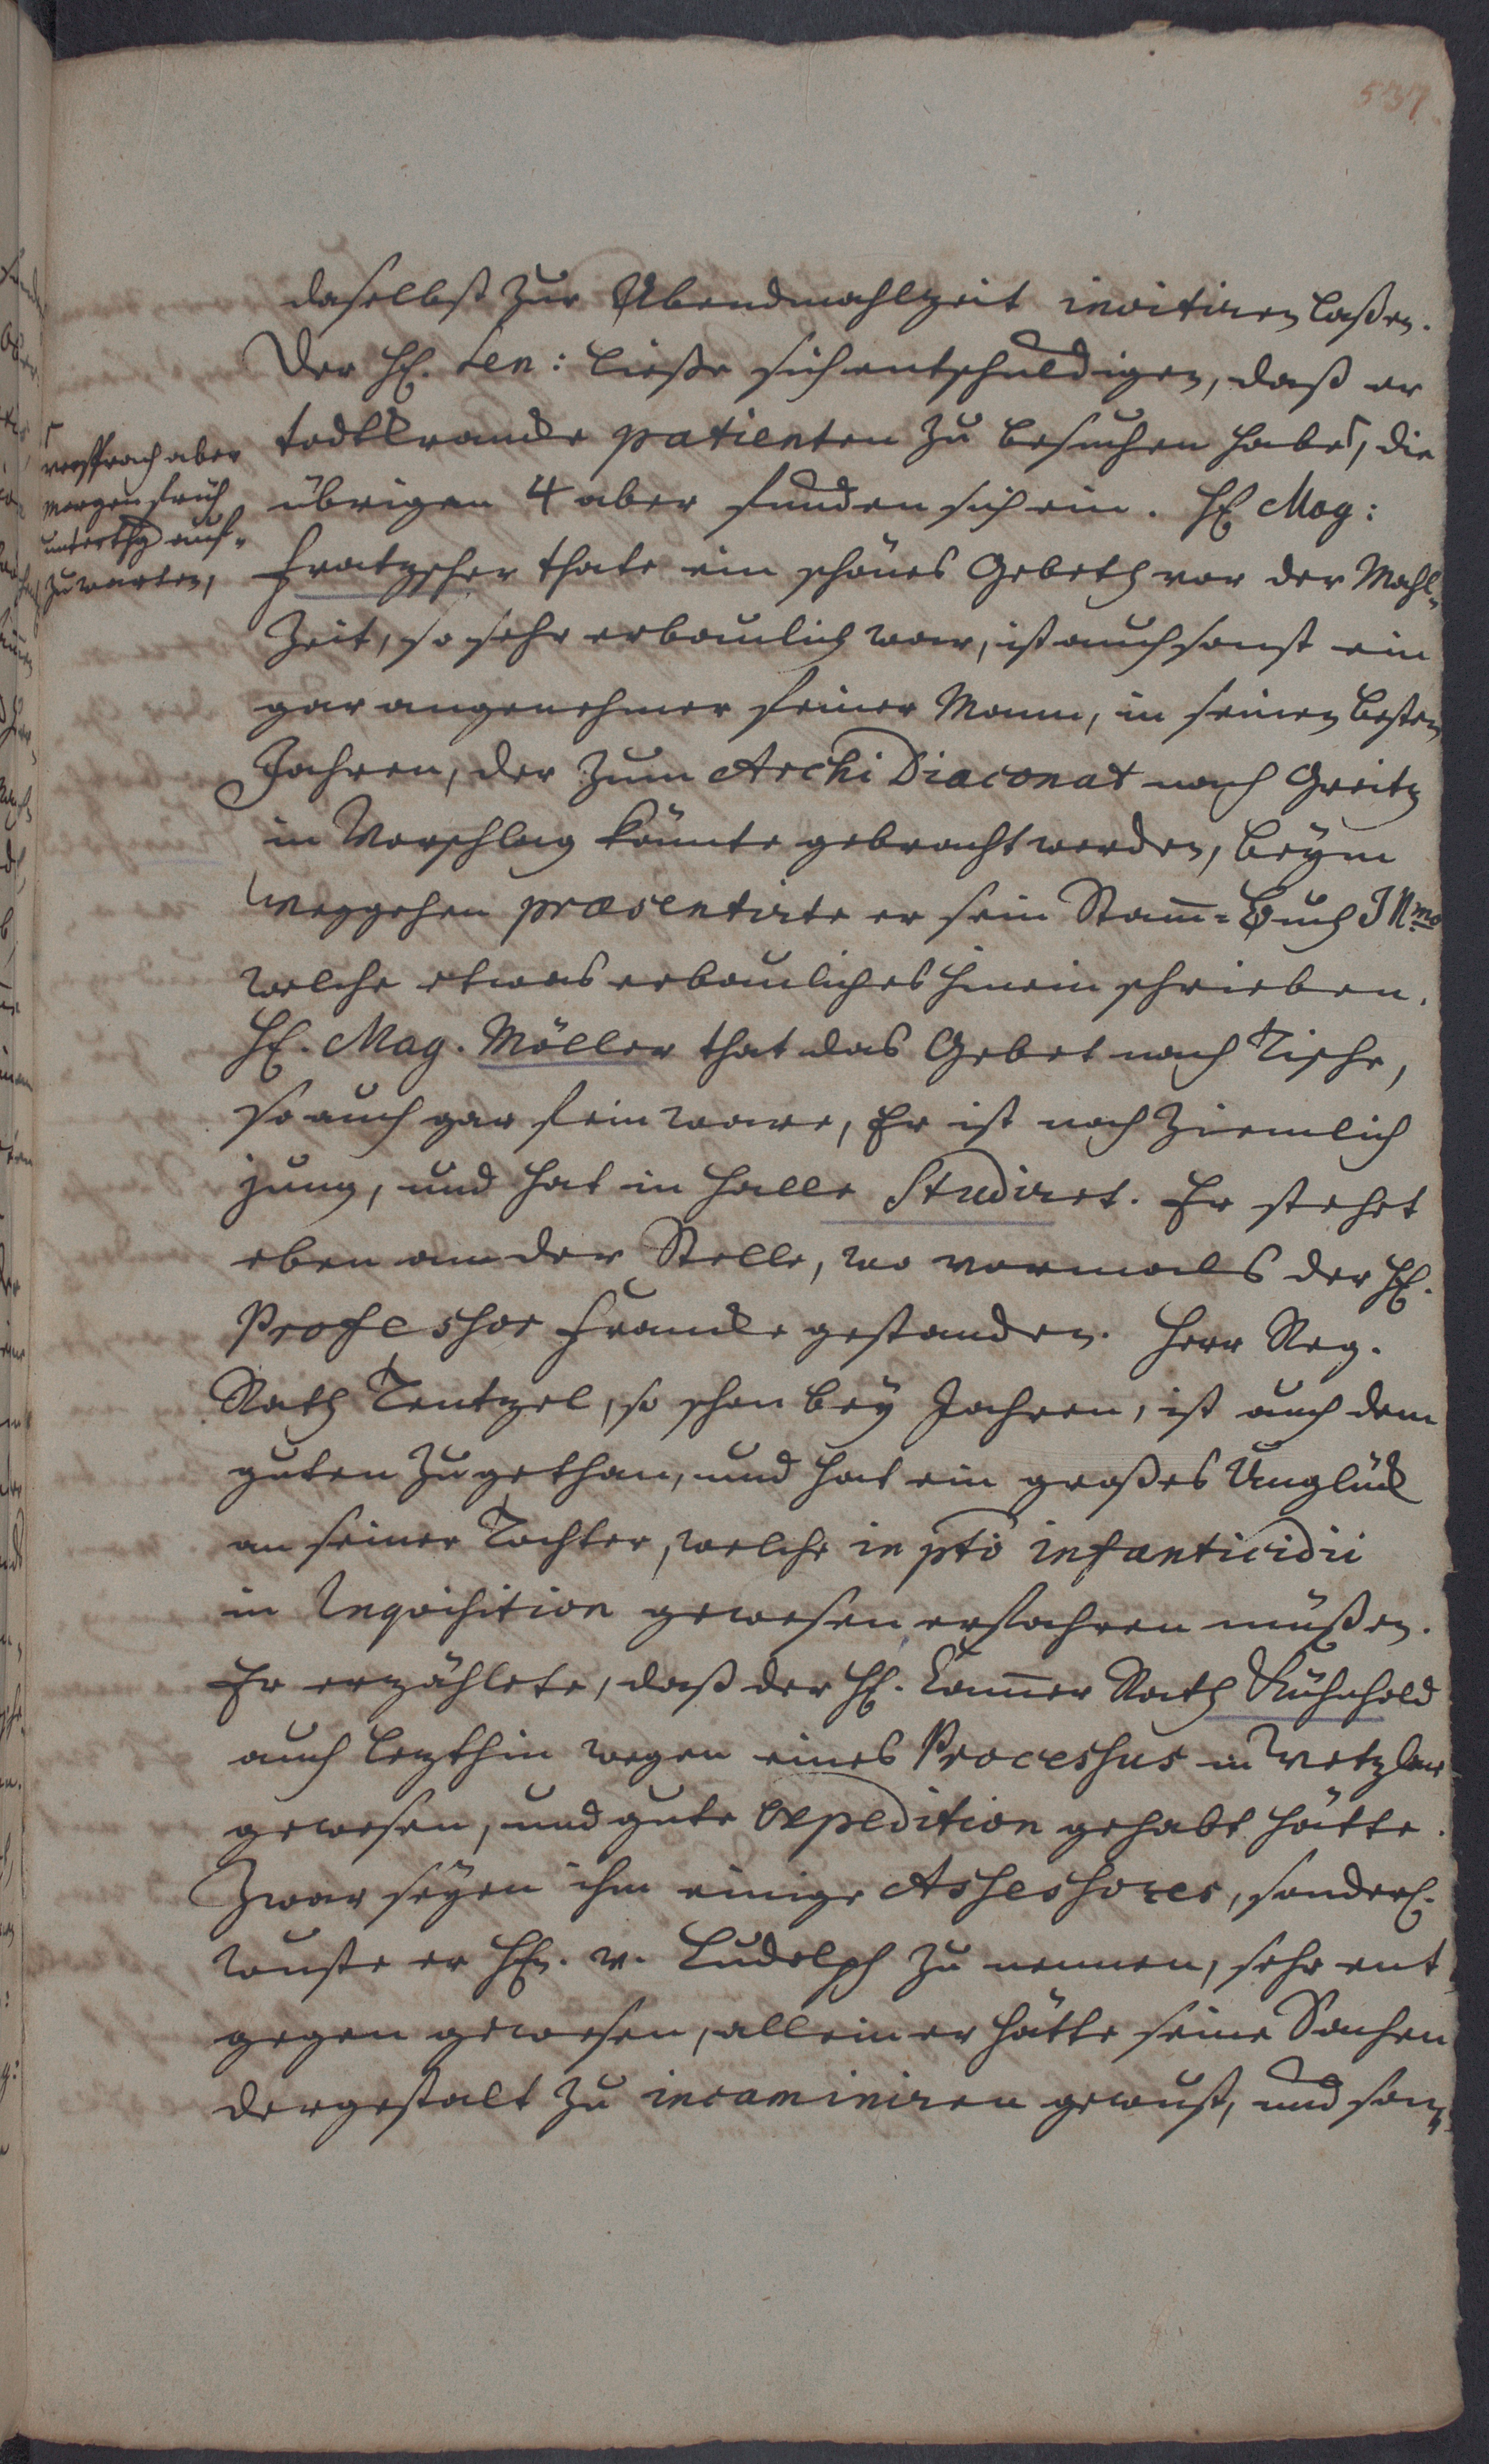 537.
daselbst zur Abendmahlzeit invitiren laßen.
Der H. Sen: ließe sich entschuldigen, daß er
todtkrancke patienten zu besuchen habe, die
versprach aber
morgen früh
unterthg auf-
zuwarten,
übrigen 4 aber funden sich ein. H Mag:
Fratzscher thate ein schönes Gebeth vor der Mahl-
Zeit, so sehr erbaulich war, ist auch sonst ein
gar angenehmer feiner Mann, in seinen besten
Jahren, der zum ArchiDiaconat nach Greitz
in Vorschlag könnte gebracht werden, beym
weggehen præsentirte er sein Stam̅-Buch Illmo
welche etwas erbauliches hinein schrieben.
H. Mag. Möller that das Gebet nach Tische,
so auch gar fein ware, Er ist noch ziemlich
jung, und hat in Halle Studiret. Er stehet
eben an der Stelle, wo vormals der H.
Professor Francke gestanden. Herr Reg.
Rath Tentzel, so schon bey Jahren, ist auch dem
guten zugethan, und hat ein großes Unglück
an seiner Tochter, welche in pto infanticidii
in Inquisition gewesen erfahren müßen.
Er erzählete, daß der H. Cam̅er Rath Kühnhold
auch lezthin wegen eines Processus in Wetzlar
gewesen, und gute Expedition gehabt hätte.
Zwar seyen ihm einige Assessores, sonderl.
wuste er Hn. v. Ludolph zu nennen, sehr ent
gegen gewesen, allein er hätte seine Sachen
dergestalt zu incaminiren gewust, und son-